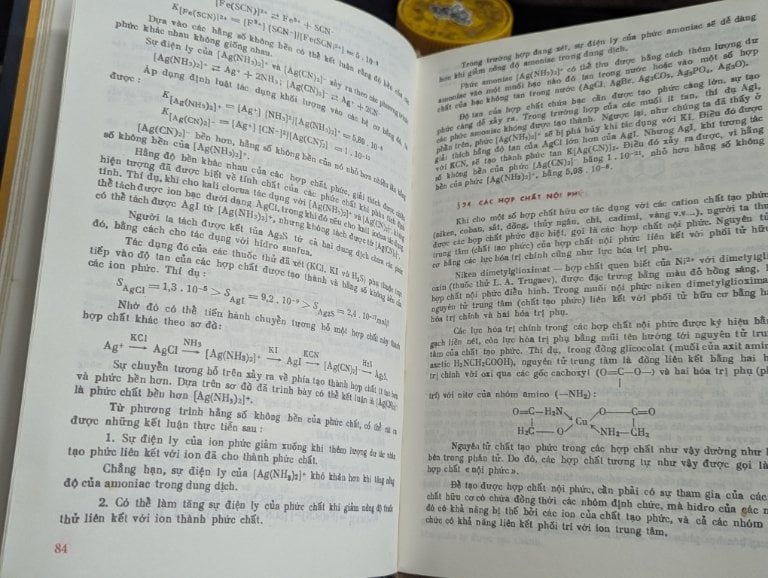 [Fe(SCN)]²⁺ ⇄ Fe³⁺ + SCN⁻
K[Fe(SCN)]²⁺ = [Fe³⁺] [SCN⁻]/[Fe(SCN)²⁺] = 5 . 10⁻³
Dựa vào các hằng số không bền có thể kết luận rằng độ bền của các
phức khác nhau không giống nhau.
Sự điện ly của [Ag(NH₃)₂]⁺ và [Ag(CN)₂]⁻ xảy ra theo các phương trình
[Ag(NH₃)₂]⁺ ⇄ Ag⁺ + 2NH₃ ; [Ag(CN)₂]⁻ ⇄ Ag⁺ + 2CN⁻
Áp dụng định luật tác dụng khối lượng vào các hệ cơ bằng
được :
K[Ag(NH₃)₂]⁺ = [Ag⁺] [NH₃]²/[Ag(NH₃)₂]⁺ = 5,89 . 10⁻⁸
K[Ag(CN)₂]⁻ = [Ag⁺] [CN⁻]²/[Ag(CN)₂]⁻ = 1 . 10⁻²¹
[Ag(CN)₂]⁻ bền hơn, hằng số không bền của nó nhỏ hơn nhiều
số không bền của [Ag(NH₃)₂]⁺.
Hằng độ bền khác nhau của các hợp chất phức, giải thích được
hiện tượng đã được biết về tính chất của các phức chất khi
tính. Thí dụ, khi cho kali clorua tác dụng với [Ag(NH₃)₂]⁺ và [Ag(CN)₂]⁻
thể tách được ion bạc dưới dạng AgCl, trong khi đó nếu cho kali iodua tác dụng
có thể tách được AgI từ [Ag(NH₃)₂]⁺, nhưng không tách được từ [Ag(CN)₂]⁻.
Người ta tách được kết tủa Ag₂S từ cả hai dung dịch chứa các phức
đó, bằng cách cho tác dụng với hidro sunfua.
Tác dụng đó của các thuốc thử đã xét (KCl, KI và H₂S) phụ thuộc trực
tiếp vào độ tan của các hợp chất được tạo thành và hằng số không bền của
các ion phức. Thí dụ :
S AgCl = 1,3 . 10⁻⁵ > S AgI = 9,2 . 10⁻⁹ > S Ag₂S = 2,4 . 10⁻¹⁷ mol/l
Nhờ đó có thể tiến hành chuyển tương hỗ một hợp chất này thành
hợp chất khác theo sơ đồ :
Ag⁺ —KCl→ AgCl —NH₃→ [Ag(NH₃)₂]⁺ —KI→ AgI —KCN→ [Ag(CN)₂]⁻ —H₂S→ Ag₂S.
Sự chuyển tương hỗ trên xảy ra về phía tạo thành hợp chất ít tan hơn
và phức bền hơn. Dựa trên sơ đồ đã trình bày có thể kết luận là [Ag(CN)₂]⁻
là phức chất bền hơn [Ag(NH₃)₂]⁺.
Từ phương trình hằng số không bền của phức chất, có thể rút ra
được những kết luận thực tiễn sau :
1. Sự điện ly của ion phức giảm xuống khi thêm lượng dư tác nhân
tạo phức liên kết với ion đã cho thành phức chất.
Chẳng hạn, sự điện ly của [Ag(NH₃)₂]⁺ khó khăn hơn khi tăng nồng
độ của amoniac trong dung dịch.
2. Có thể làm tăng sự điện ly của phức chất khi giảm nồng độ thuốc
thử liên kết với ion thành phức chất.
84
Trong trường hợp đang xét, sự điện ly của phức amoniac sẽ dễ dàng
hơn khi giảm nồng độ amoniac trong dung dịch.
Phức amoniac [Ag(NH₃)₂]⁺ có thể thu được bằng cách thêm lượng dư
amoniac vào một muối bạc nào đó tan trong nước hoặc vào một số hợp
chất của bạc không tan trong nước (AgCl, AgBr, Ag₂CO₃, Ag₃PO₄, Ag₂O).
Độ tan của hợp chất chứa bạc cần được tạo phức càng lớn, sự tạo
phức càng dễ xảy ra. Trong trường hợp của các muối ít tan, thí dụ AgI,
các phức amoniac không được tạo thành. Ngược lại, như chúng ta đã thấy ở
phần trên, phức [Ag(NH₃)₂]⁺ sẽ bị phá hủy khi tác dụng với KI. Điều đó được
giải thích bằng độ tan của AgCl lớn hơn của AgI. Nhưng AgI, khi tương tác
với KCN, sẽ tạo thành phức tan K[Ag(CN)₂]. Điều đó xảy ra được, vì hằng
số không bền của phức [Ag(CN)₂]⁻ bằng 1 . 10⁻²¹, nhỏ hơn hằng số không
bền của phức [Ag(NH₃)₂]⁺, bằng 5,98 . 10⁻⁸.
§ 24. CÁC HỢP CHẤT NỘI PHỨC
Khi cho một số hợp chất hữu cơ tác dụng với các cation chất tạo phức
(niken, coban, sắt, đồng, thủy ngân, chì, cadimi, vàng v.v...), người ta thu
được các hợp chất phức đặc biệt, gọi là các hợp chất nội phức. Nguyên tử
trung tâm (chất tạo phức) của hợp chất nội phức liên kết với phối tử hữu
cơ bằng các lực hóa trị chính cũng như lực hóa trị phụ.
Niken dimetylglioximat — hợp chất quen biết của Ni²⁺ với dimetylgli-
oxim (thuốc thử L. A. Trugaev), được đặc trưng bằng màu đỏ hồng sáng,
hợp chất nội phức điển hình. Trong muối nội phức niken dimetylglioximat
nguyên tử trung tâm (chất tạo phức) liên kết với phối tử hữu cơ bằng
hóa trị chính và hai hóa trị phụ.
Các lực hóa trị chính trong các hợp chất nội phức được ký hiệu bằng
gạch liên nét, còn lực hóa trị phụ bằng mũi tên hướng tới nguyên tử trung
tâm của chất tạo phức. Thí dụ, trong đồng glicocolat (muối của axit amino-
axetic H₂NCH₂COOH), nguyên tử trung tâm là đồng liên kết bằng hai
trị chính với oxi qua các gốc cacboxyl (O=C—O—) và hai hóa trị phụ
trị) với nitơ của nhóm amino (—NH₂) :
O=C—H₂N O—C=O
Cu
H₂C—O NH₂—CH₂
Nguyên tử chất tạo phức trong các hợp chất như vậy dường như
bên trong phân tử. Do đó, các hợp chất tương tự như vậy được gọi là
hợp chất « nội phức ».
Để tạo được hợp chất nội phức, cần phải có sự tham gia của các
chất hữu cơ có chứa đồng thời các nhóm định chức, mà hidro của các
đó có khả năng bị thế bởi các ion của chất tạo phức, và cả các nhóm
chức có khả năng liên kết phối trí với ion trung tâm.